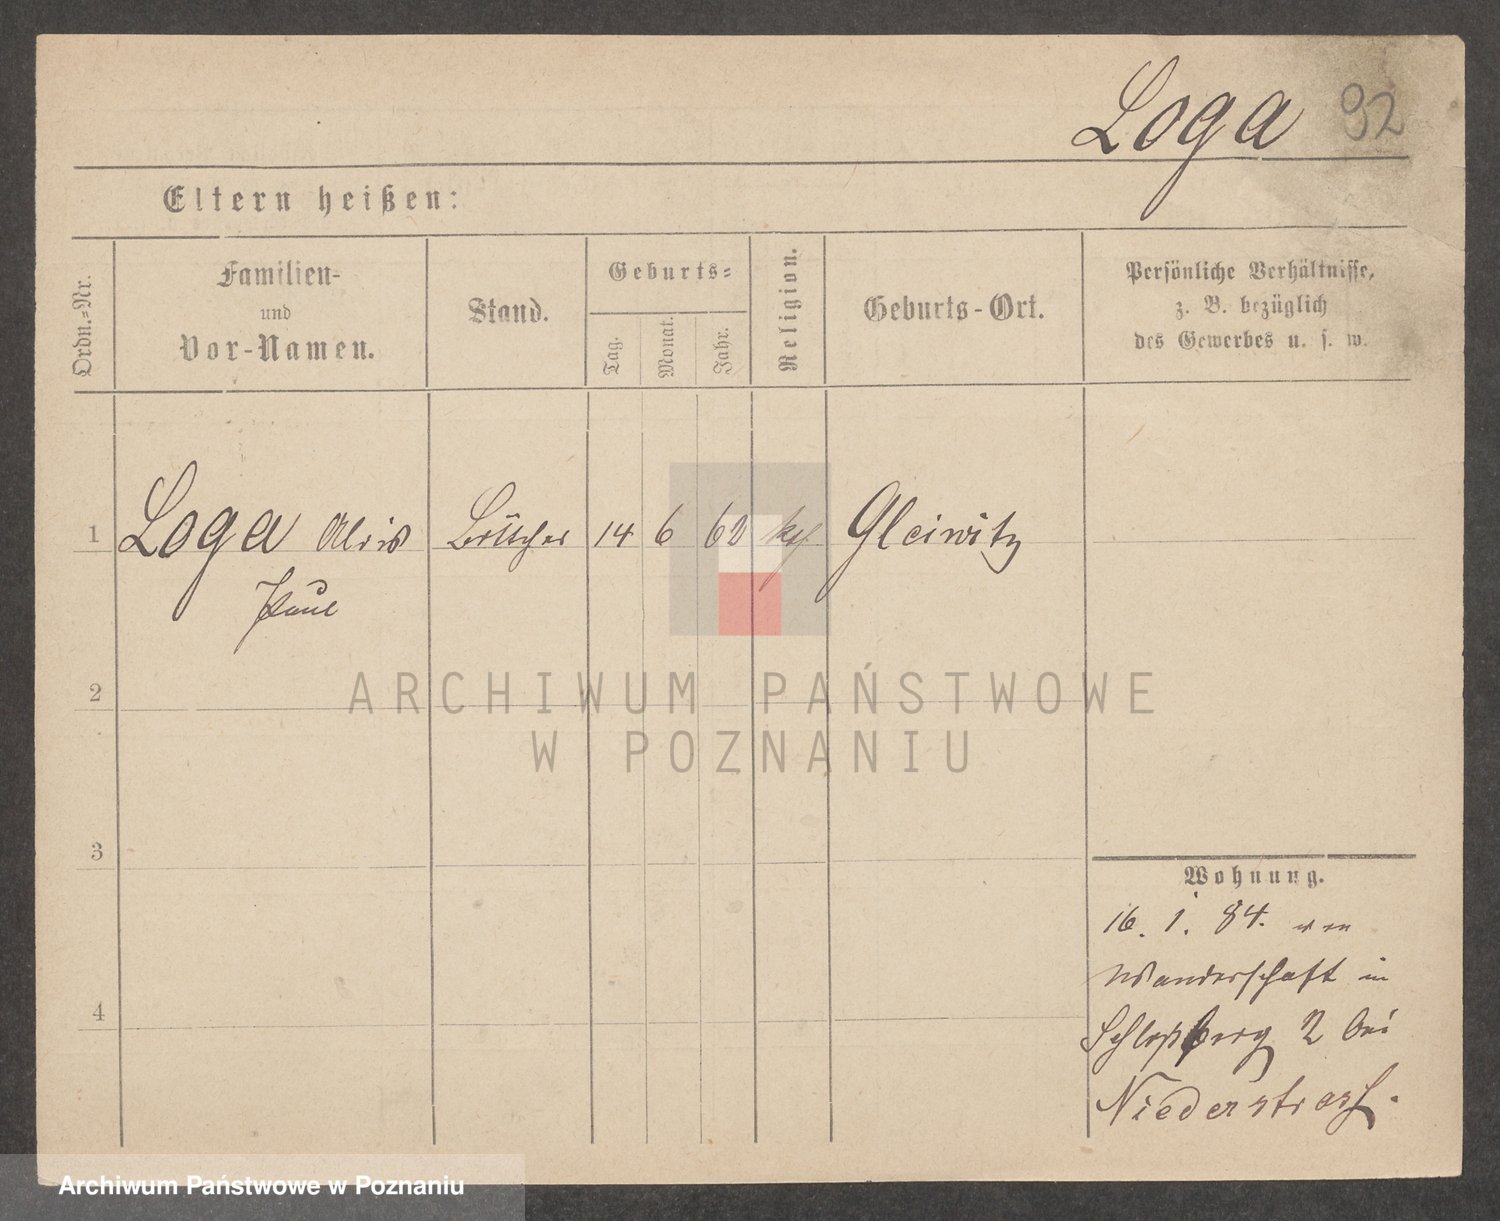 Loga 92
Eltern heißen:
Ordn.-Nr.
Familien-
und
Vor-Namen.
Stand.
Geburts-
Tag.
Monat.
Jahr.
Religion.
Geburts-Ort.
Persönliche Verhältnisse,
z. B. bezüglich
des Gewerbes u. s. w.
1 Loga Alois Böttcher 14 6 62 kath Gleiwitz
Paul
2
3
4
Wohnung.
16. 1. 84. von
Wanderschaft in
Schloßberg 2 bei
Niederstraß.
ARCHIWUM PAŃSTWOWE
W POZNANIU
Archiwum Państwowe w Poznaniu